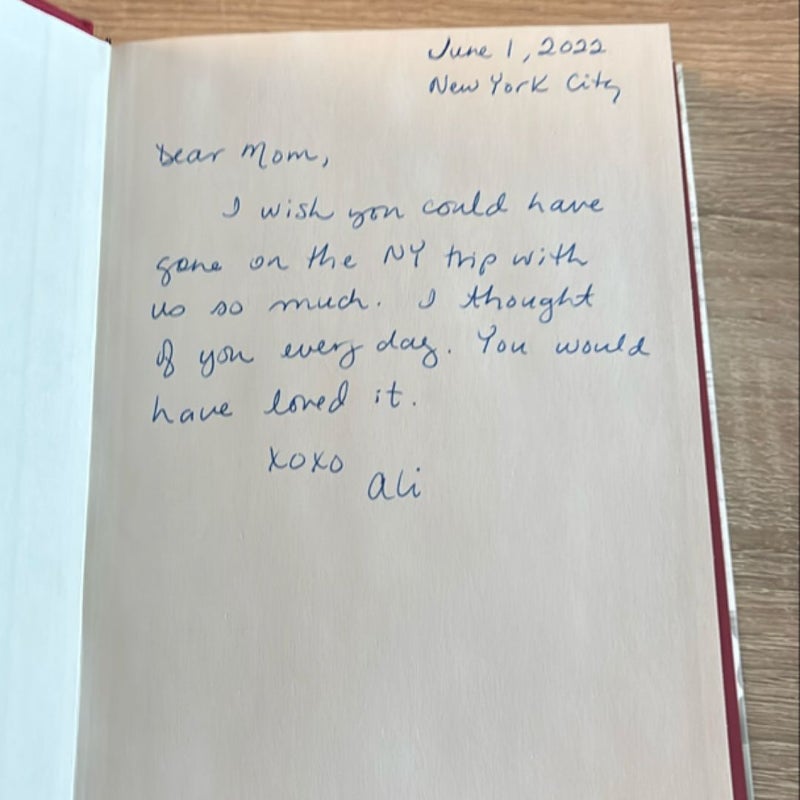 June 1, 2022
New York City
Dear Mom,
I wish you could have
gone on the NY trip with
us so much. I thought
of you every day. You would
have loved it.
xoxo
Ali